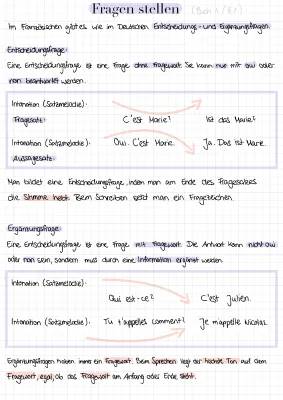 Fragen stellen (Buch A / E1)
Im Französischen gibt es wie im Deutschen Entscheidungs- und Ergänzungsfragen.
Entscheidungsfrage
Eine Entscheidungsfrage ist eine Frage ohne Fragewort. Sie kann nur mit oui oder
non beantwortet werden.
Intonation (Satzmelodie):
Fragesatz C'est Marie? Ist das Marie?
Intonation (Satzmelodie): Oui. C'est Marie. Ja. Das ist Marie.
Aussagesatz
Man bildet eine Entscheidungsfrage, indem man am Ende des Fragesatzes
die Stimme hebt. Beim Schreiben setzt man ein Fragezeichen.
Ergänzungsfrage
Eine Entscheidungsfrage ist eine Frage mit Fragewort. Die Antwort kann nicht oui
oder non sein, sondern muss durch eine Information ergänzt werden.
Intonation (Satzmelodie):
Qui est-ce? C'est Julien.
Intonation (Satzmelodie): Tu t'appelles comment? Je m'appelle Nicolas.
Ergänzungsfragen haben immer ein Fragewort. Beim Sprechen liegt der höchste Ton auf dem
Fragewort, egal, ob das Fragewort am Anfang oder Ende steht.